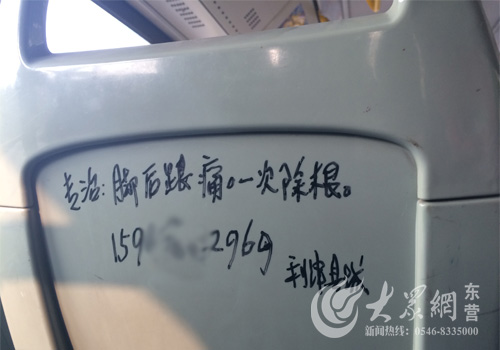 专治:脚后跟痛。一次除根。
159 2969
利津县城
大众網 东营
新闻热线：0546-8335000